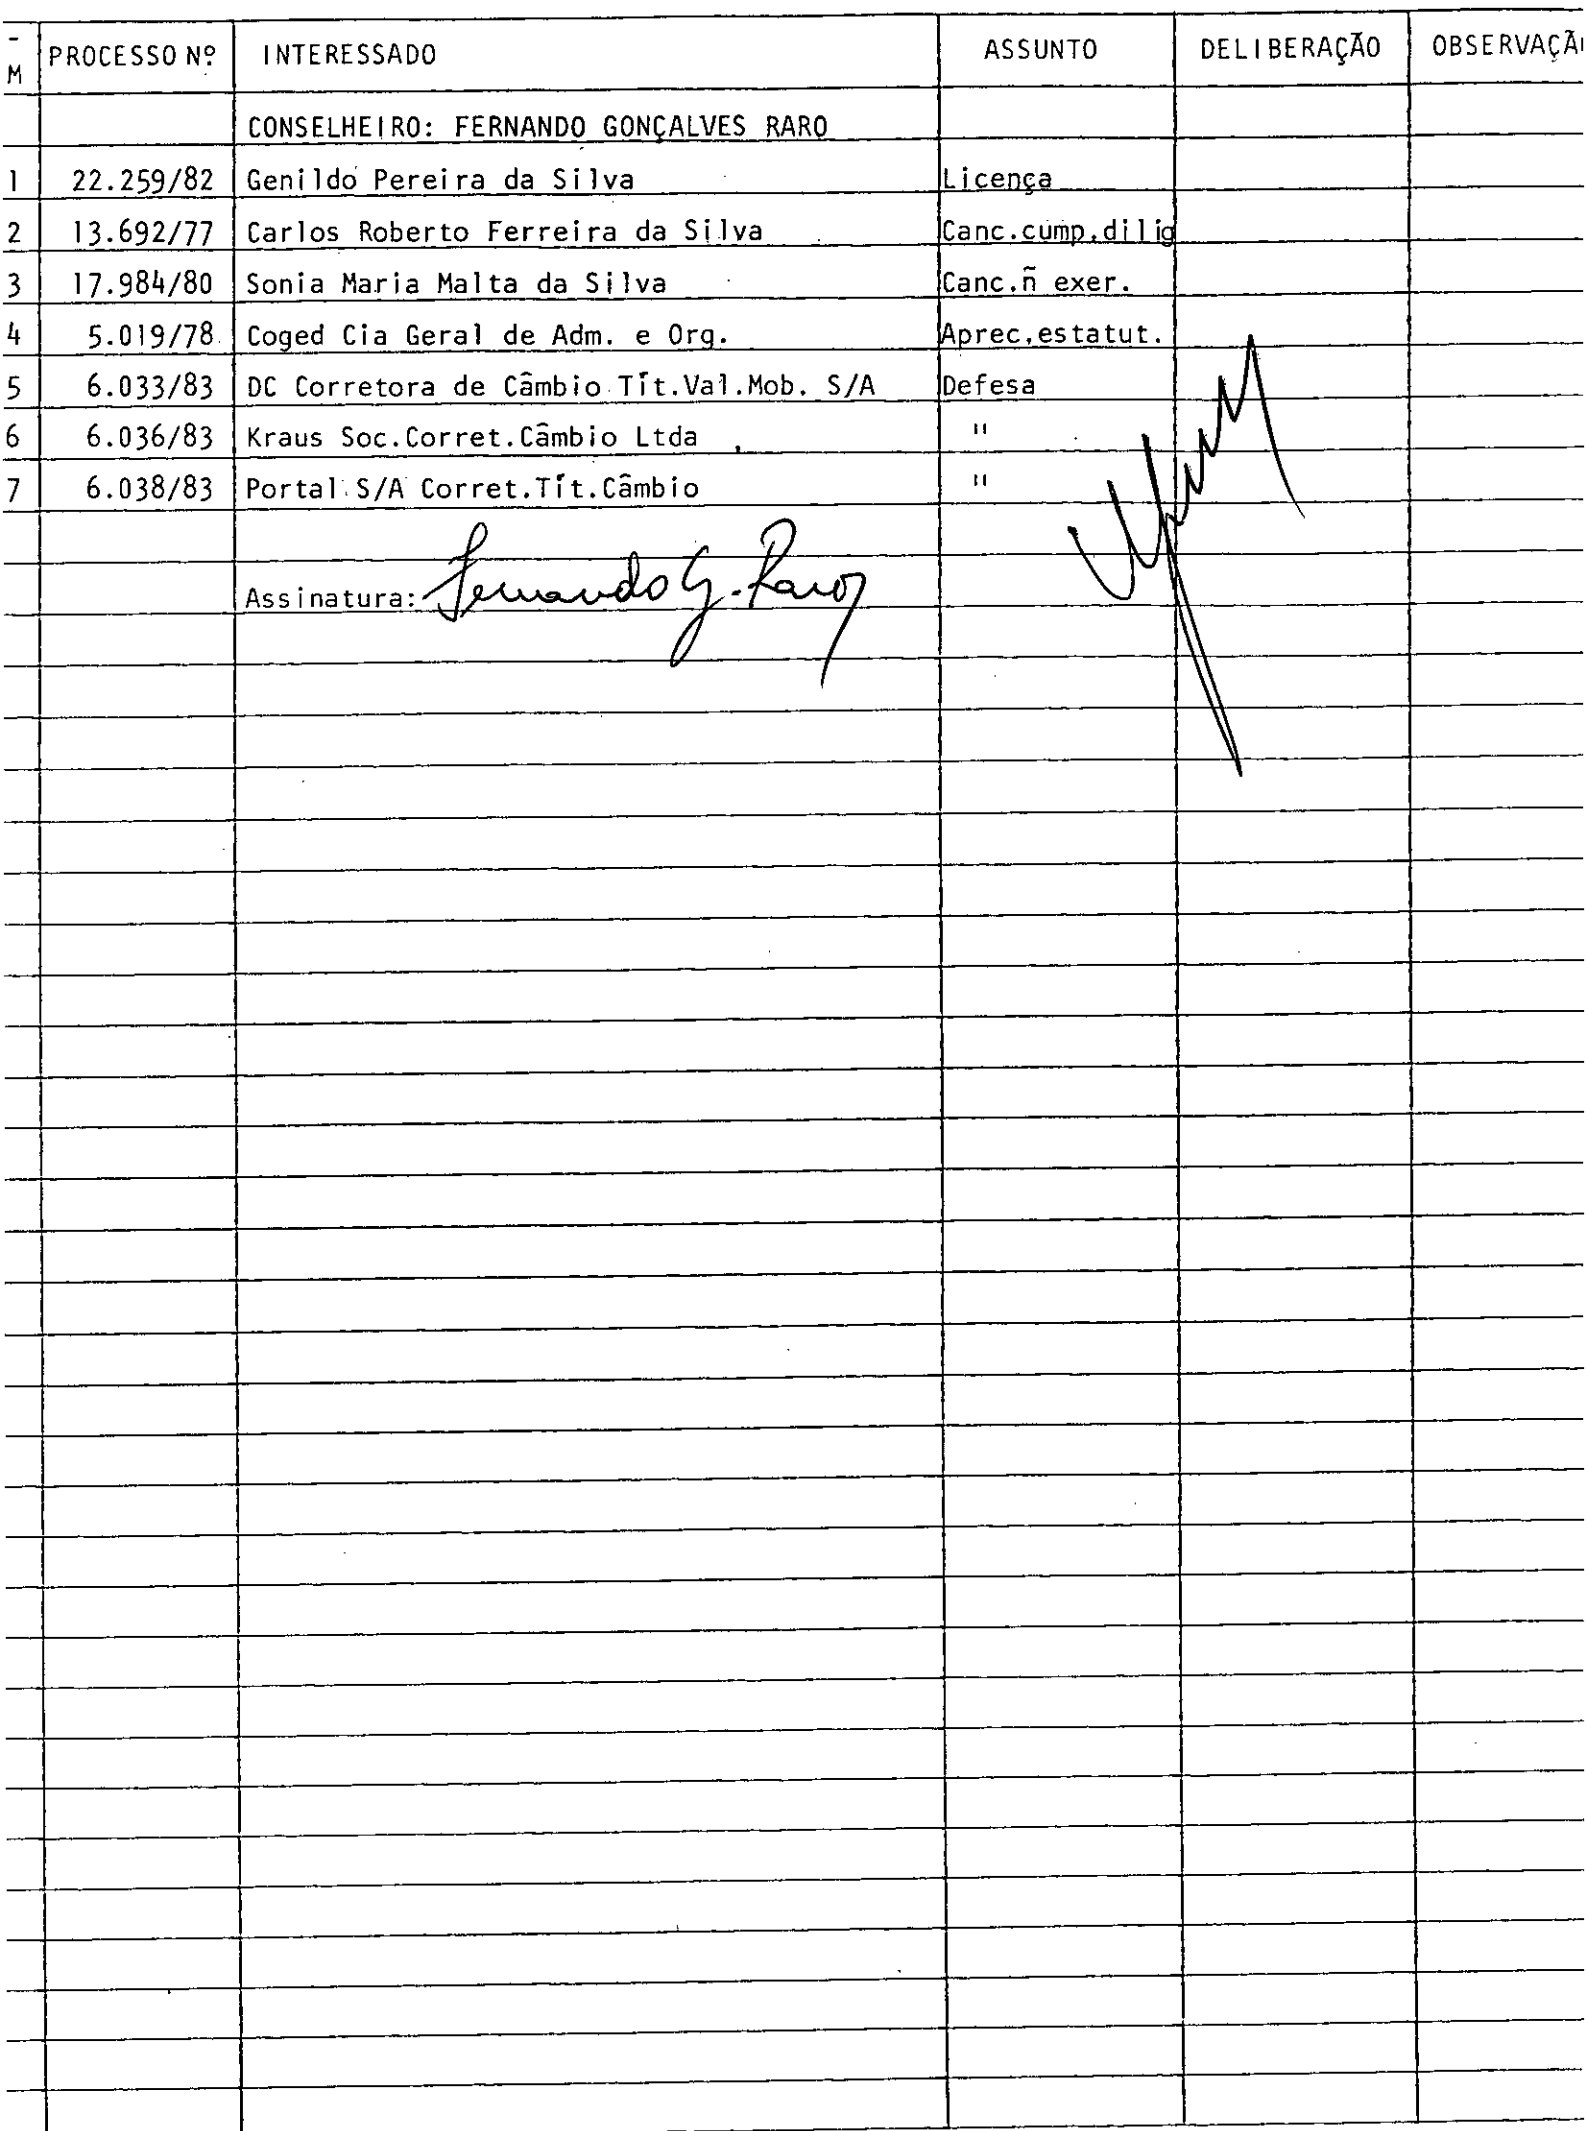 - M PROCESSO Nº INTERESSADO ASSUNTO DELIBERAÇÃO OBSERVAÇÃ
CONSELHEIRO: FERNANDO GONÇALVES RARO
1 22.259/82 Genildo Pereira da Silva Licença
2 13.692/77 Carlos Roberto Ferreira da Silva Canc.cump.dilig
3 17.984/80 Sonia Maria Malta da Silva Canc.ñ exer.
4 5.019/78 Coged Cia Geral de Adm. e Org. Aprec.estatut.
5 6.033/83 DC Corretora de Câmbio Tít.Val.Mob. S/A Defesa
6 6.036/83 Kraus Soc.Corret.Câmbio Ltda "
7 6.038/83 Portal S/A Corret.Tít.Câmbio "
Assinatura: Fernando G. Raro